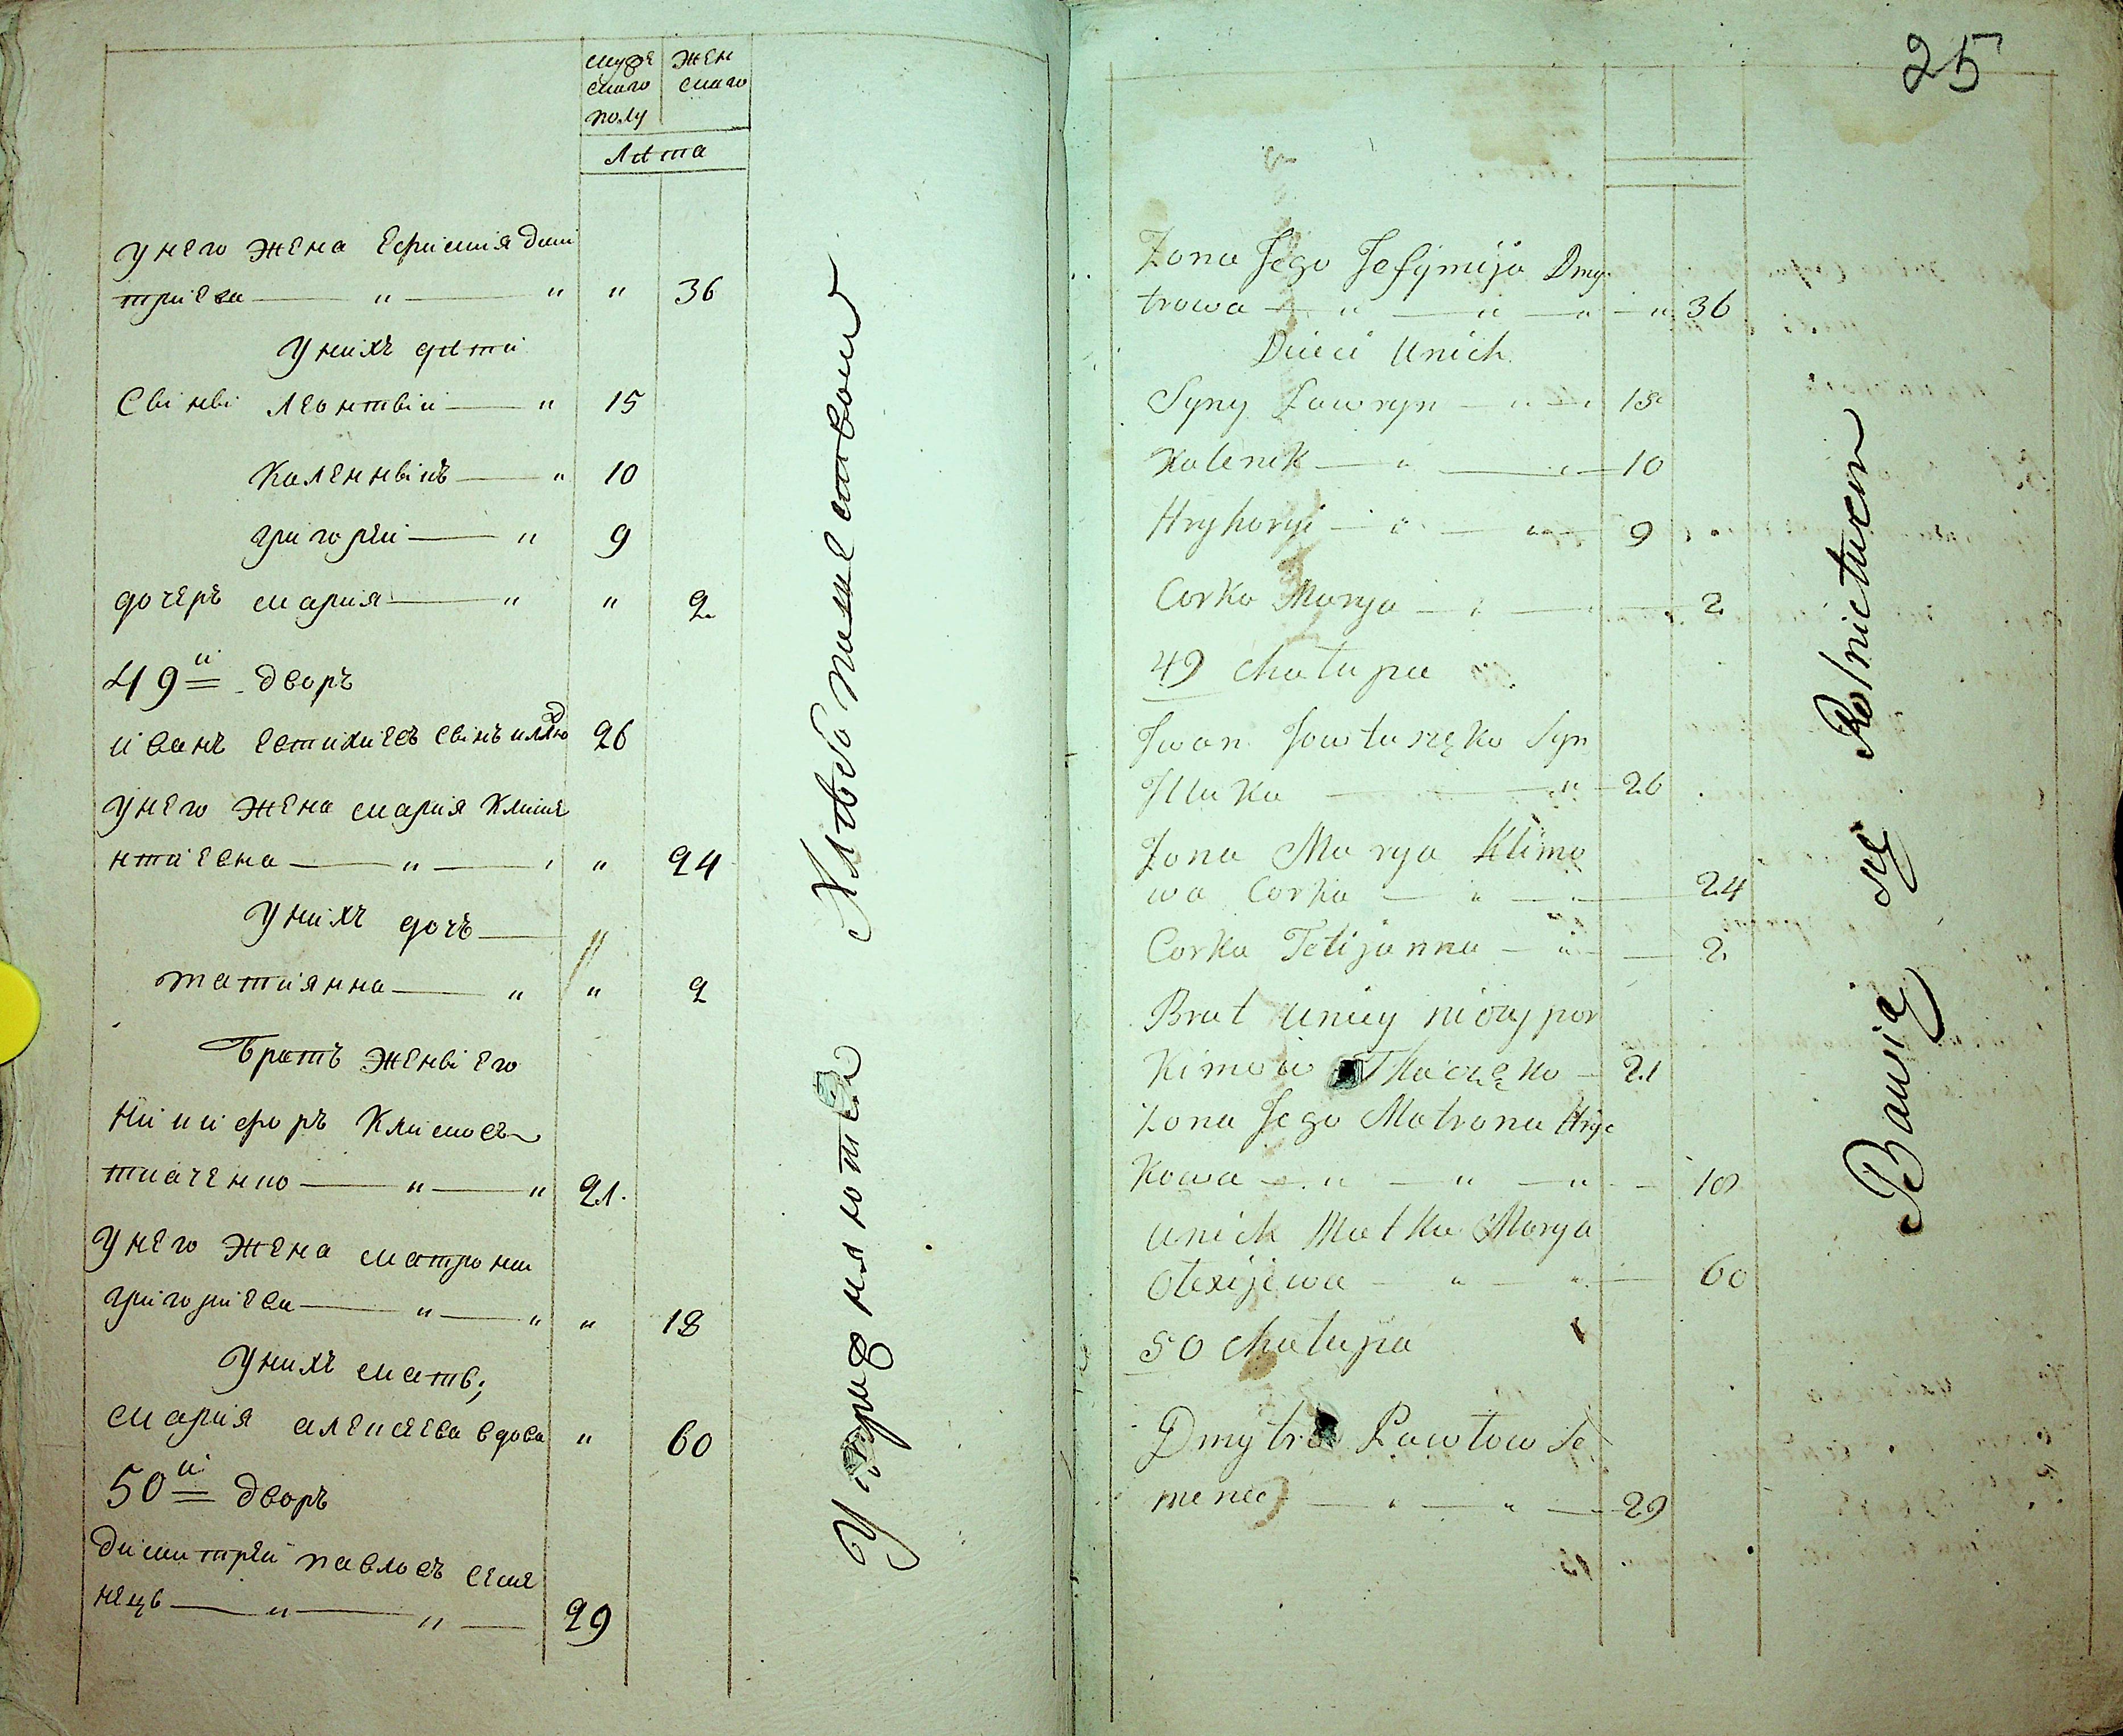 муже
скаго
полу
жен
скаго
лѣта
у него жена Ефимия Дми
триева " " " 36
у нихъ дѣти
Сыны Леонтвій " 15
Каленныкъ " 10
Григорѣй " 9
дочеръ мария " " 2
49й дворъ
иванъ Евтихиевъ сынъ 26
у него жена мария Климе
нтиевна " " " 24
у нихъ дочъ "
татиянна " " 2
братъ жены Его
Никифоръ Климовъ
ткаченко " " 21.
у него жена матрона
григориева " " " 18
у нихъ мать;
мария алексѣева вдова " 60
50й дворъ
димитрѣй павловъ семе
нецъ " " 29
Упражняются Хлѣбопашеством
25
Zona Jego Jefymija Dmy
trowa " " " " 36
Dzieci Unich
Syny Lawryn " 15
Kalenik " 10
Hryhoryi " " 9
Corka Marya " 2
49 chatupa
Iwan Jowtuszęko Syn
Iluka " 26
Zona Marya Klimo
wa Corka " 24
Corka Tetijanna " 2
Brat
Kimow Tkaczęko 21
Zona Jego Matrona Hryc
kowa " " " 18
Unich Matka Marya
Olexijewa " " 60
50 Chatupa
Dmytro Pawłow Se
menec " " 29
Bawią się Rolnictwem